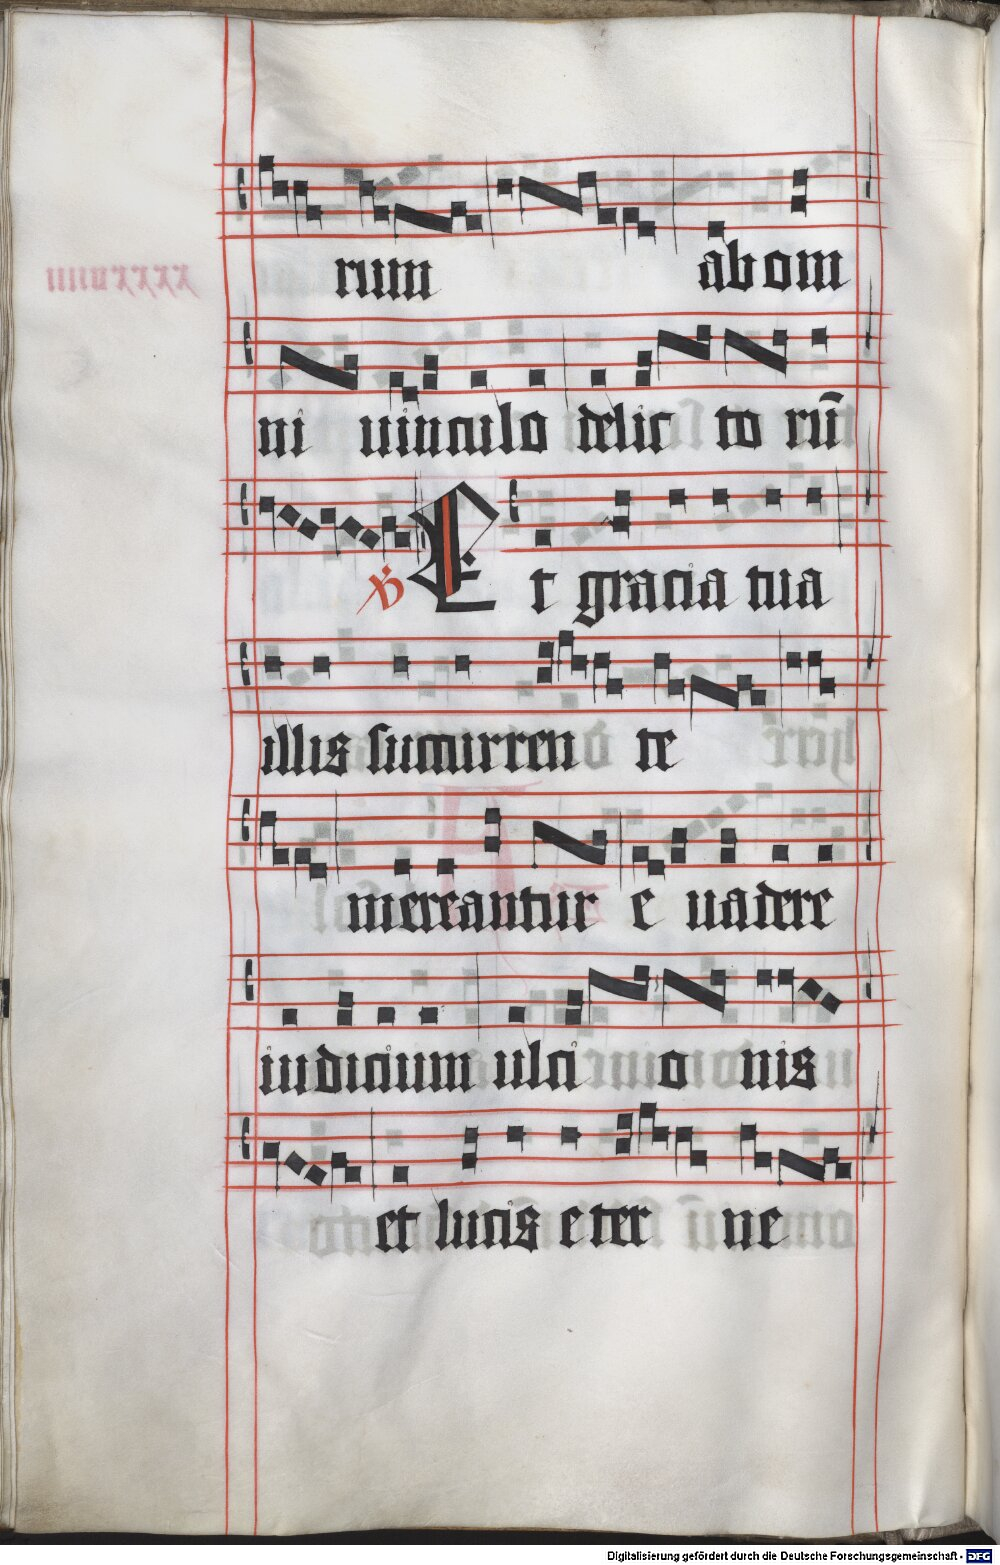 rum ab om
ni uinculo delic to rū
℣ Et gracia tua
illis succurren te
mereantur e uadere
iudicium ulci o nis
et lucis eter ne
Digitalisierung gefördert durch die Deutsche Forschungsgemeinschaft - DFG